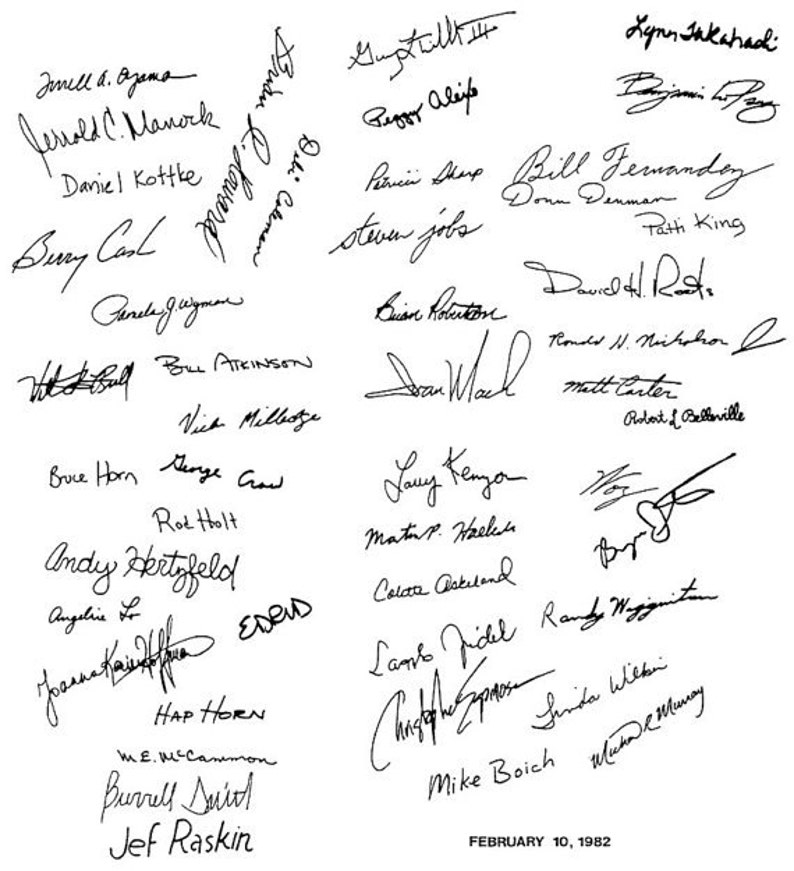 Terrell A. Oyama
Jerrold C. Manock
Daniel Kottke
Brian R. Howard
Debi Coleman
Berry Cash
Pamela J. Wyman
Bill Atkinson
Vicki Milledge
Bruce Horn
George Crow
Rod Holt
Andy Hertzfeld
Angeline Lo
Joanna Karine Hoffman
HAP HORN
M.E. McCammon
Burrell Smith
Jef Raskin
Guy Tribble III
Peggy Alexio
Patricia Sharp
steven jobs
Brian Robertson
Ivan Mach
Larry Kenyon
Martin P. Haeberli
Colette Askeland
Laszlo Zidek
Christopher Espinosa
Mike Boich
Lynn Takahashi
Benjamin Pang
Bill Fernandez
Donn Denman
Patti King
David H. Roots
Ronald H. Nicholson Jr
Matt Carter
Robert L Belleville
Woz
Bryan
Randy Wigginton
Linda Wilkin
Michael R Murray
FEBRUARY 10, 1982